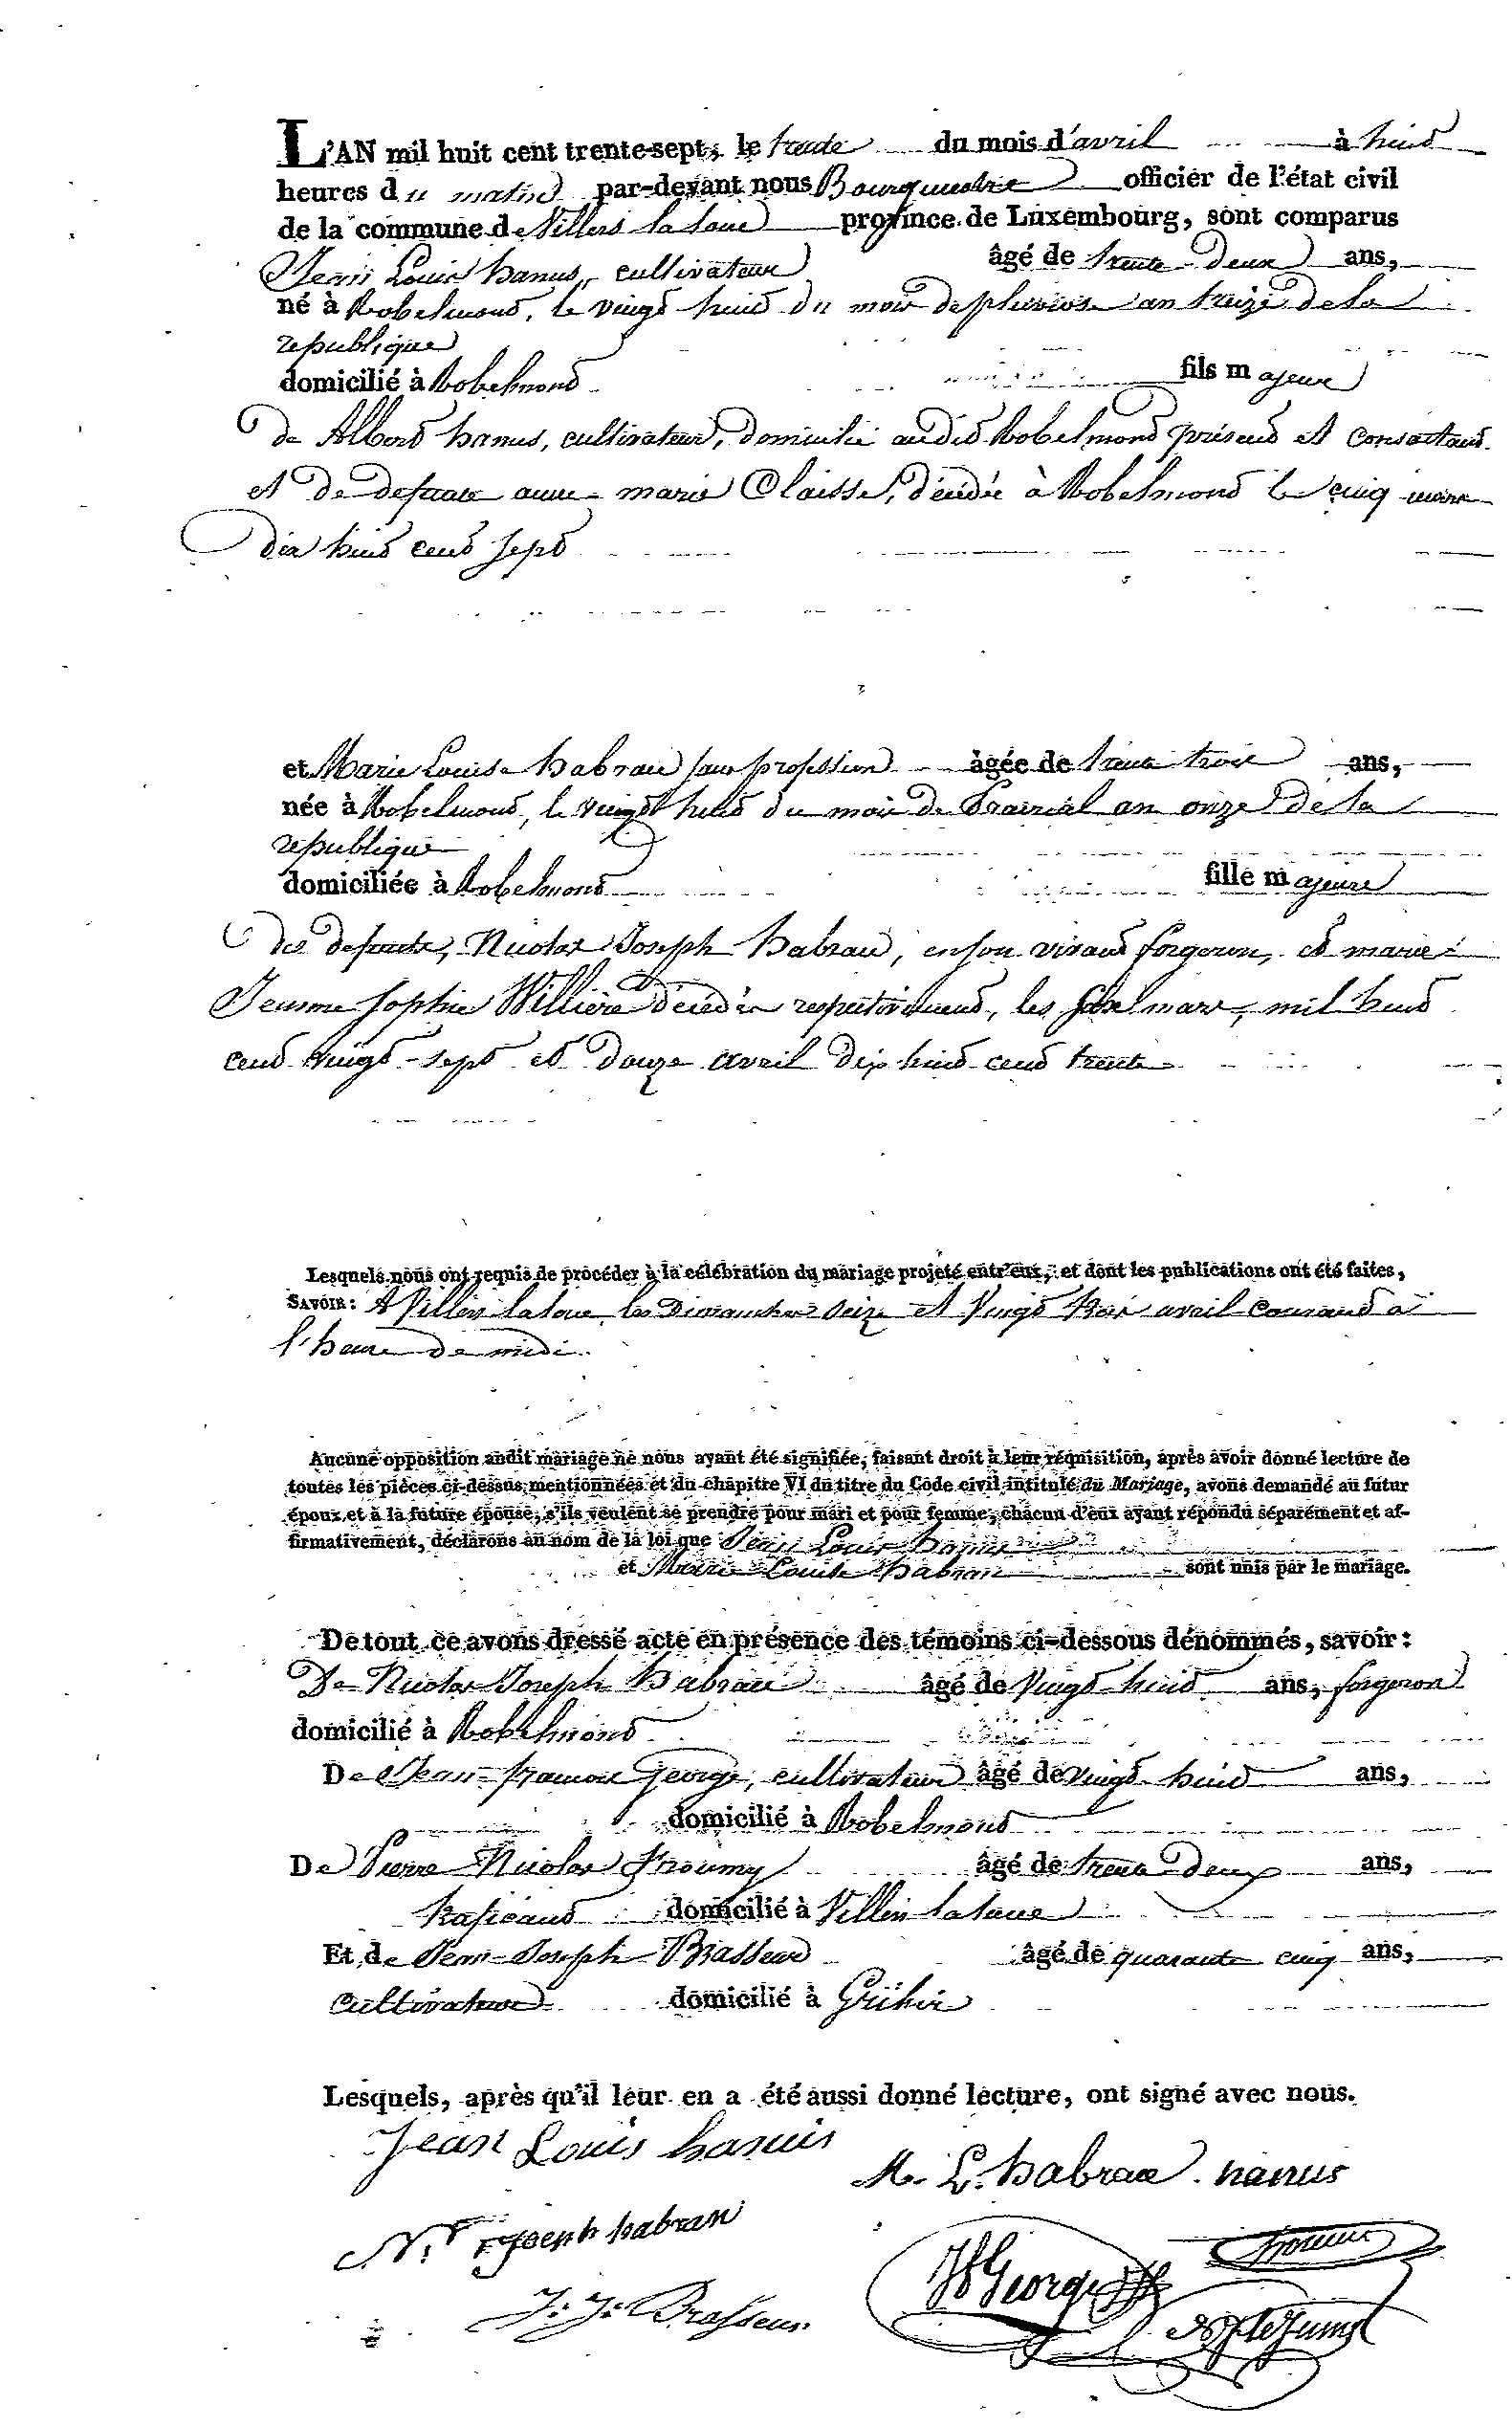 L'AN mil huit cent trente-sept, le trente du mois d'avril à huit
heures du matin par-devant nous Bourgmestre officier de l'état civil
de la commune de Villers la loue province de Luxembourg, sont comparus
Jean Louis hanus, cultivateur âgé de trente-deux ans,
né à Robelmond, le vingt huit du mois de pluviose an treize de la
republique
domicilié à Robelmond fils majeur
de Albert hanus, cultivateur, domicilié audit Robelmond présent et consentant
et de defunte anne-marie Claisse, décédée à Robelmond le cinq mars
dix huit cent sept
et Marie Louise habran sans profession âgée de trente trois ans,
née à Robelmond, le vingt huit du mois de Prairial an onze de la
republique
domiciliée à Robelmond fille majeure
des defunts, Nicolas Joseph habran, en son vivant forgeron, et marie
Jeanne Sophie Willière décédés respectivement, les mars, mil huit
cent vingt-sept et douze avril dix-huit-cent trente
Lesquels nous ont requis de procéder à la célébration du mariage projeté entr'eux, et dont les publications ont été faites,
SAVOIR: A Villers la loue, les Dimanches seize et Vingt trois avril courant à
l'heure de midi.
Aucune opposition audit mariage ne nous ayant été signifiée, faisant droit à leur réquisition, après avoir donné lecture de
toutes les pièces ci-dessus mentionnées et du chapitre VI du titre du Code civil intitulé du Mariage, avons demandé au futur
époux et à la future épouse, s'ils veulent se prendre pour mari et pour femme, chacun d'eux ayant répondu séparément et af-
firmativement, déclarons au nom de la loi que Jean Louis hanus
et Marie Louise habran sont unis par le mariage.
De tout ce avons dressé acte en présence des témoins ci-dessous dénommés, savoir:
De Nicolas Joseph habran âgé de Vingt-huit ans, forgeron
domicilié à Robelmond
De Jean-francois George, cultivateur âgé de vingt-huit ans,
domicilié à Robelmond
De Pierre Nicolas froumy âgé de trente-deux ans,
domicilié à Villers la loue
Et de Jean-Joseph Brasseur âgé de quarante cinq ans,
Cultivateur domicilié à
Lesquels, après qu'il leur en a été aussi donné lecture, ont signé avec nous.
Jean Louis hanus
M. L. habran. hanus
N. Joseph habran
George
J. J. Brasseur